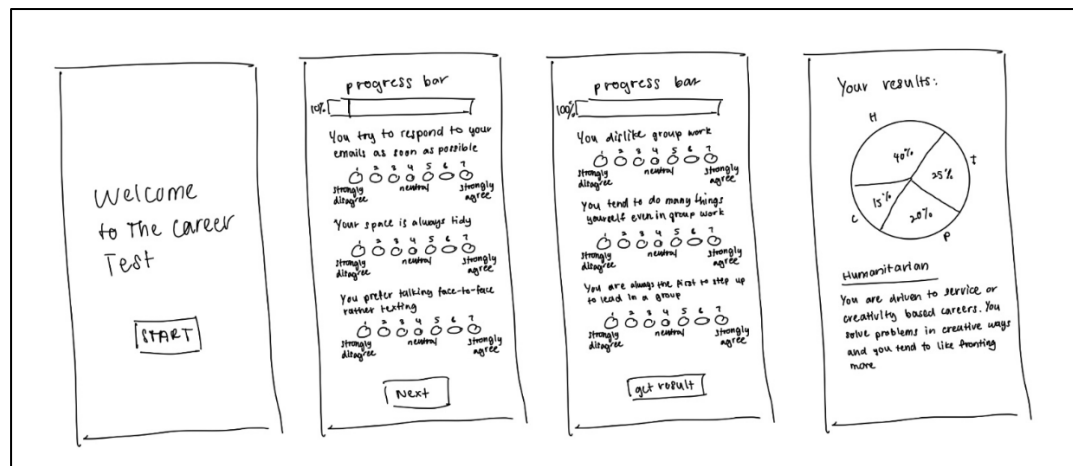 Welcome
to The career
Test
START
progress bar
10%
You try to respond to your
emails as soon as possible
1 2 3 4 5 6 7
strongly
disagree
neutral
strongly
agree
Your space is always tidy
1 2 3 4 5 6 7
strongly
disagree
neutral
strongly
agree
You prefer talking face-to-face
rather texting
1 2 3 4 5 6 7
strongly
disagree
neutral
strongly
agree
Next
progress bar
100%
You dislike group work
1 2 3 4 5 6 7
strongly
disagree
neutral
strongly
agree
You tend to do many things
yourself even in group work
1 2 3 4 5 6 7
strongly
disagree
neutral
strongly
agree
You are always the first to step up
to lead in a group
1 2 3 4 5 6 7
strongly
disagree
neutral
strongly
agree
get result
Your results:
H
40%
T
25%
15%
C
20%
P
Humanitarian
You are driven to service or
creativity based careers. You
solve problems in creative ways
and you tend to like fronting
more